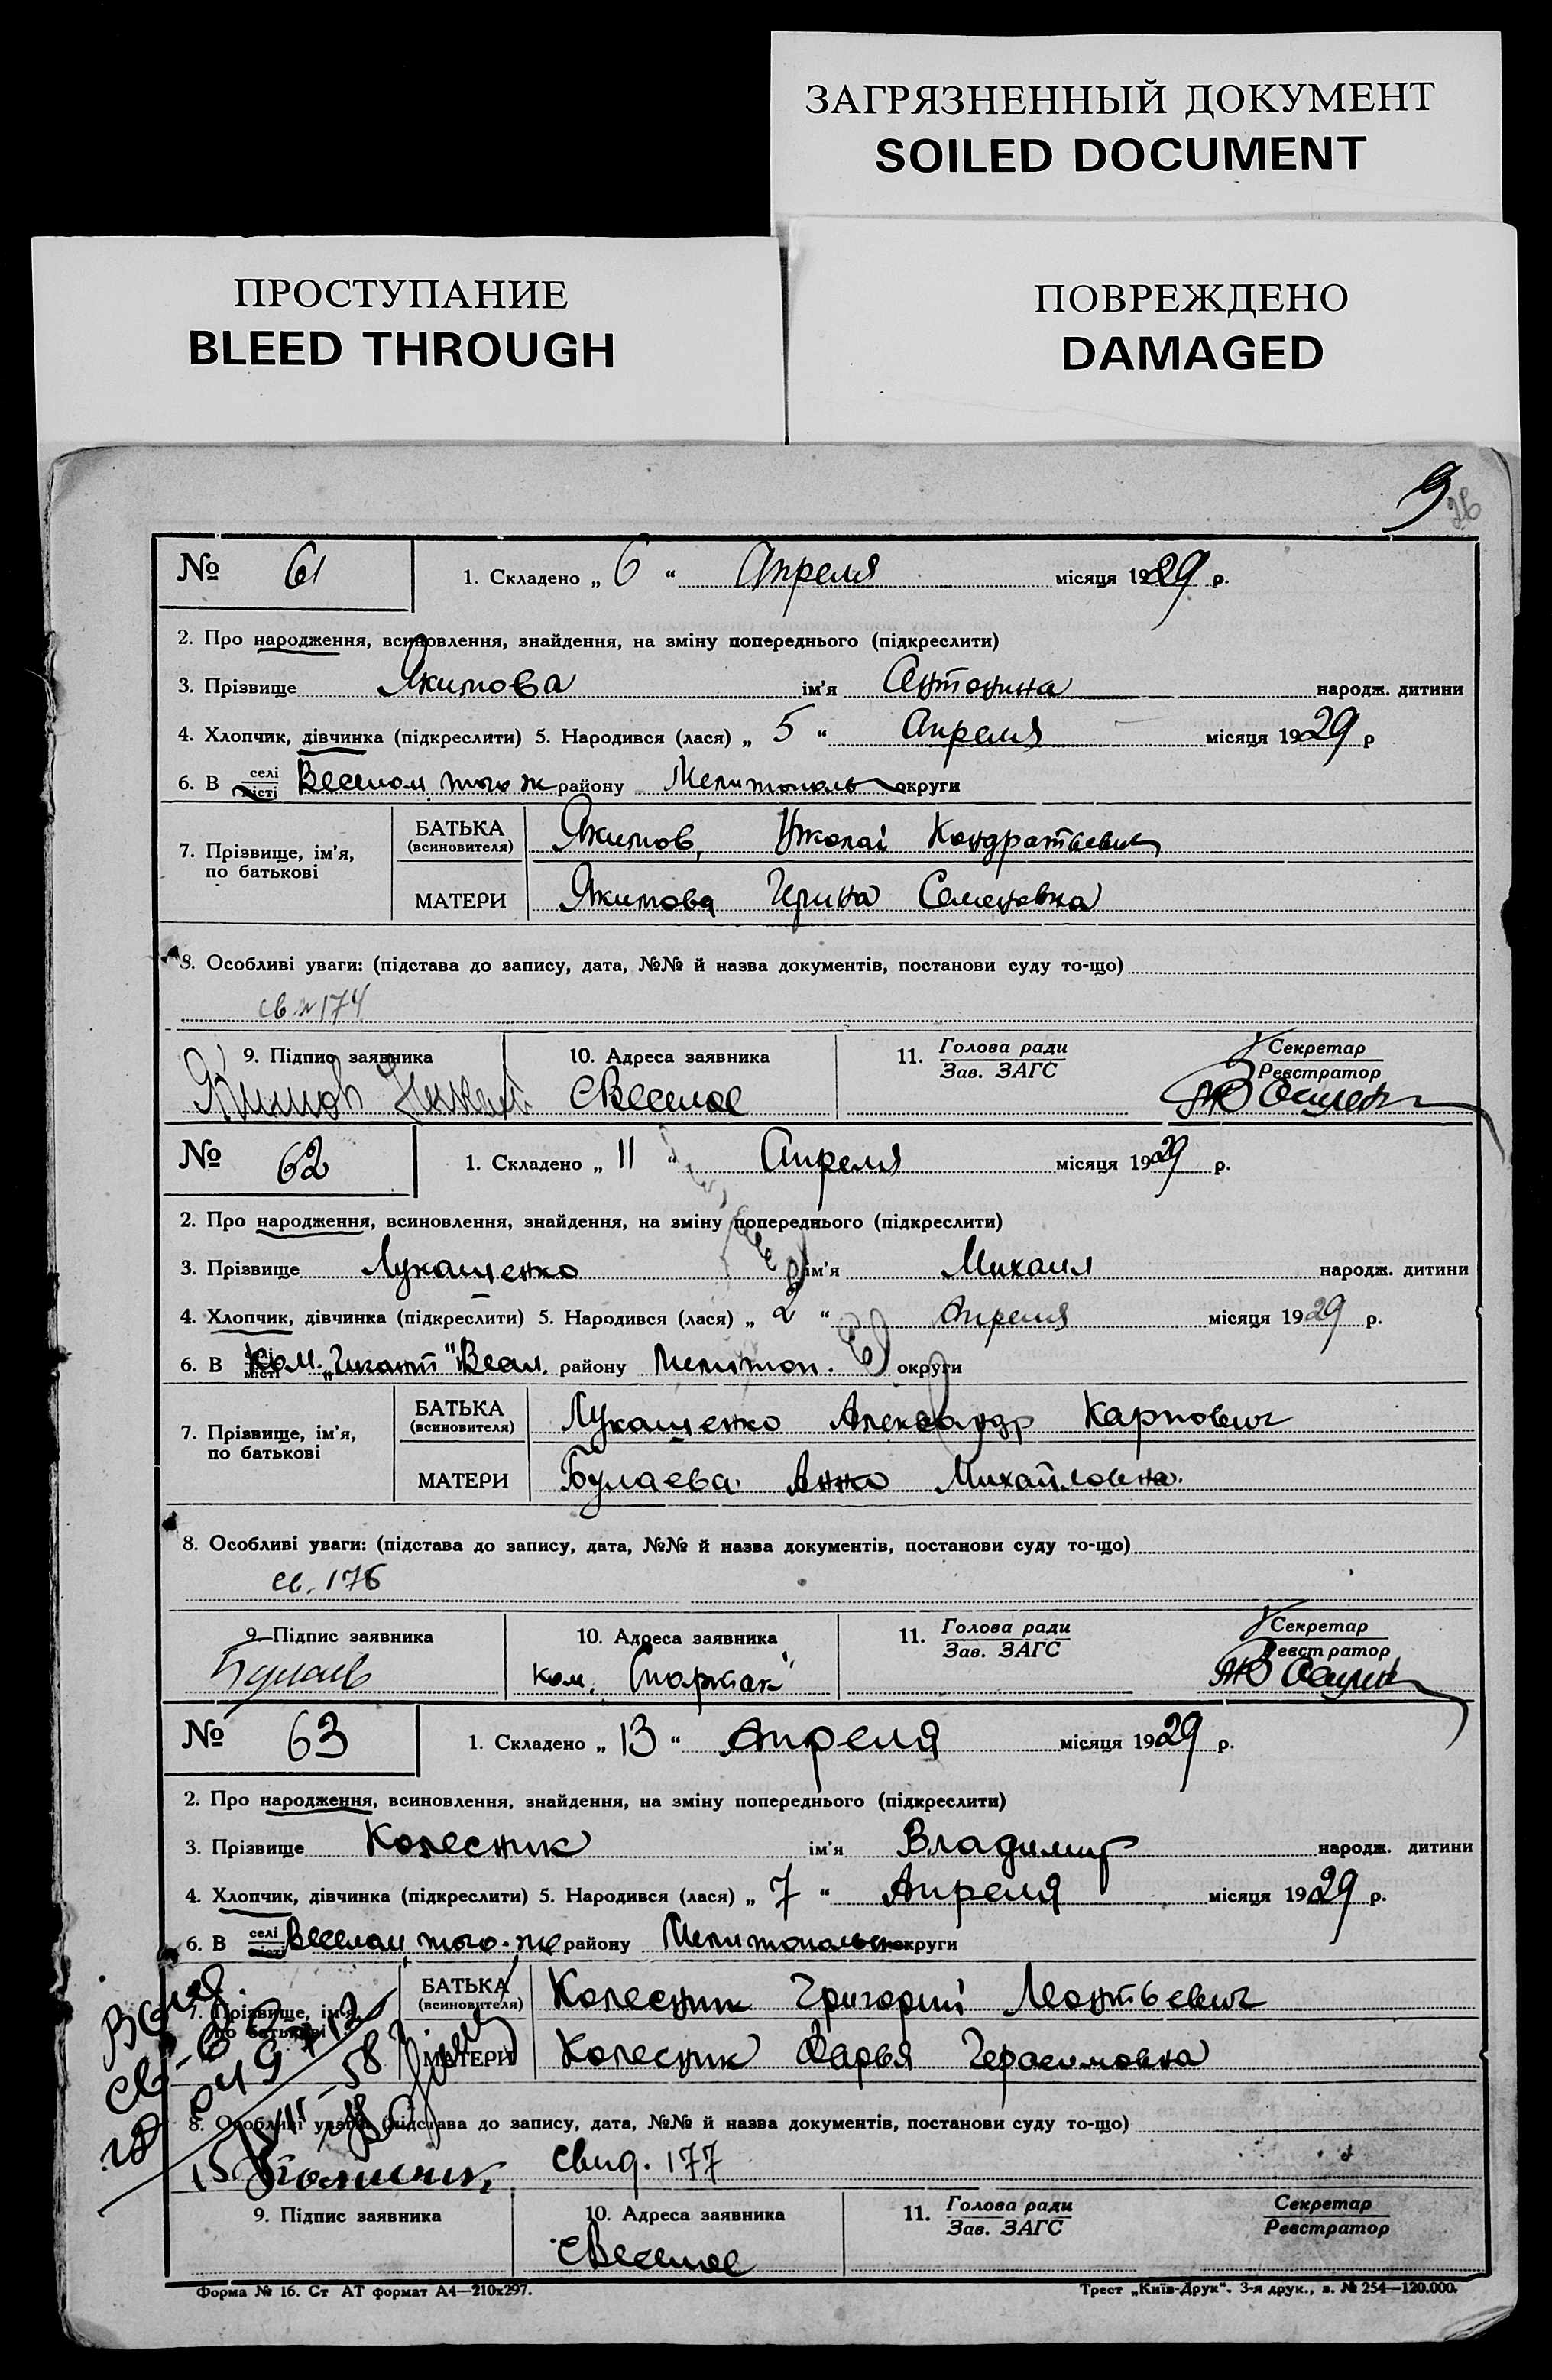 ЗАГРЯЗНЕННЫЙ ДОКУМЕНТ
SOILED DOCUMENT
ПРОСТУПАНИЕ
BLEED THROUGH
ПОВРЕЖДЕНО
DAMAGED
9
26
№ 61 1. Складено „ 6 “ Апреля місяця 1929 р.
2. Про народження, всиновлення, знайдення, на зміну попереднього (підкреслити)
3. Прізвище Якимова ім'я Антонина народж. дитини
4. Хлопчик, дівчинка (підкреслити) 5. Народився (лася) „ 5 “ Апреля місяця 1929 р
6. В селі місті Веселом того ж району Мелитополь округи
7. Прізвище, ім'я, по батькові
БАТЬКА (всиновителя) Якимов, Николаі Кондратьевич
МАТЕРИ Якимова Ирина Семеновна
8. Особливі уваги: (підстава до запису, дата, №№ й назва документів, постанови суду то-що)
св. № 174
9. Підпис заявника 10. Адреса заявника 11. Голова ради Зав. ЗАГС Секретар Реєстратор
Якимов с Веселое
№ 62 1. Складено „ 11 “ Апреля місяця 1929 р.
2. Про народження, всиновлення, знайдення, на зміну попереднього (підкреслити)
3. Прізвище Лукащенко ім'я Михаил народж. дитини
4. Хлопчик, дівчинка (підкреслити) 5. Народився (лася) „ 2 “ Апреля місяця 1929 р.
6. В селі місті Ком. „Гигант" Весел. району Мелитоп. округи
7. Прізвище, ім'я, по батькові
БАТЬКА (всиновителя) Лукащенко Александр Карпович
МАТЕРИ Булаева Анна Михайловна.
8. Особливі уваги: (підстава до запису, дата, №№ й назва документів, постанови суду то-що)
св. 176
9. Підпис заявника 10. Адреса заявника 11. Голова ради Зав. ЗАГС Секретар Реєстратор
Булаев ком. Спартак"
№ 63 1. Складено „ 13 “ Апреля місяця 1929 р.
2. Про народження, всиновлення, знайдення, на зміну попереднього (підкреслити)
3. Прізвище Колесник ім'я Владимир народж. дитини
4. Хлопчик, дівчинка (підкреслити) 5. Народився (лася) „ 7 “ Апреля місяця 1929 р.
6. В селі місті Веселом того-же району Мелитопольск округи
7. Прізвище, ім'я, по батькові
БАТЬКА (всиновителя) Колесник Григорий Леонтьевич
МАТЕРИ Колесник Дарья Герасимовна
8. Особливі уваги: (підстава до запису, дата, №№ й назва документів, постанови суду то-що)
свид. 177
9. Підпис заявника 10. Адреса заявника 11. Голова ради Зав. ЗАГС Секретар Реєстратор
с Веселое
Форма № 16. Ст АТ формат А4—210х297. Трест „Київ-Друк“. 3-я друк., з. № 254—120.000.